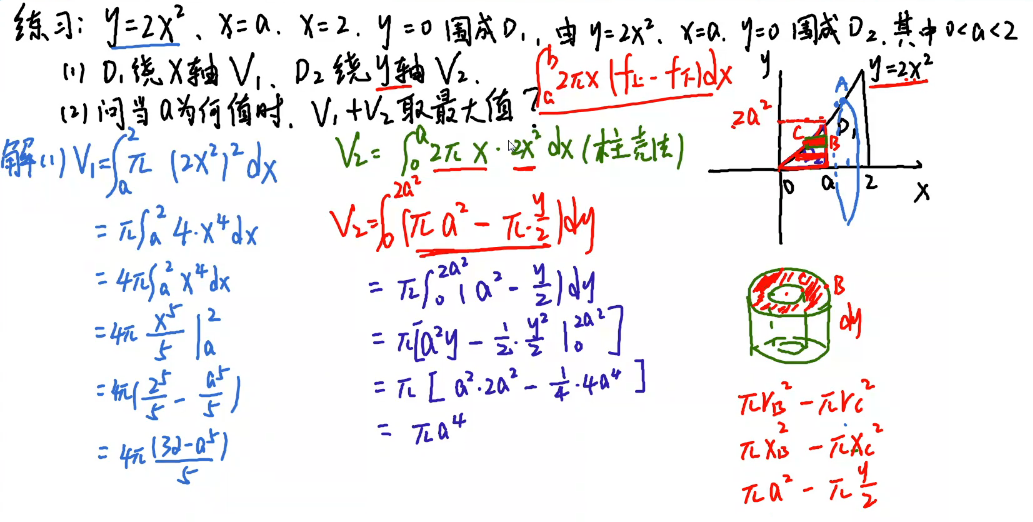 练习: y=2x²、x=a. x=2. y=0 围成D₁, 由 y=2x². x=a. y=0 围成D₂. 其中 0<a<2
(1) D₁绕X轴 V₁、D₂绕y轴 V₂.
(2) 问当a为何值时. V₁+V₂取最大值?
∫ₐᵇ 2πx (f上 - f下)dx
解(1) V₁=∫ₐ² π (2x²)² dx
= π∫ₐ² 4·x⁴dx
= 4π∫ₐ² x⁴dx
= 4π x⁵/5 |ₐ²
= 4π(2⁵/5 - a⁵/5)
= 4π (32-a⁵)/5
V₂ = ∫₀ᵃ 2πx·2x² dx (柱壳法)
V₂=∫₀^(2a²) (πa² - π·y/2)dy
= π∫₀^(2a²) (a² - y/2)dy
= π[a²y - 1/2·y²/2 |₀^(2a²)]
= π[a²·2a² - 1/4·4a⁴]
= πa⁴
y
y=2x²
A
2a²
C
D₁
B
0
a
2
x
C
B
dy
πr_B² - πr_C²
πx_B² - πx_C²
πa² - π y/2